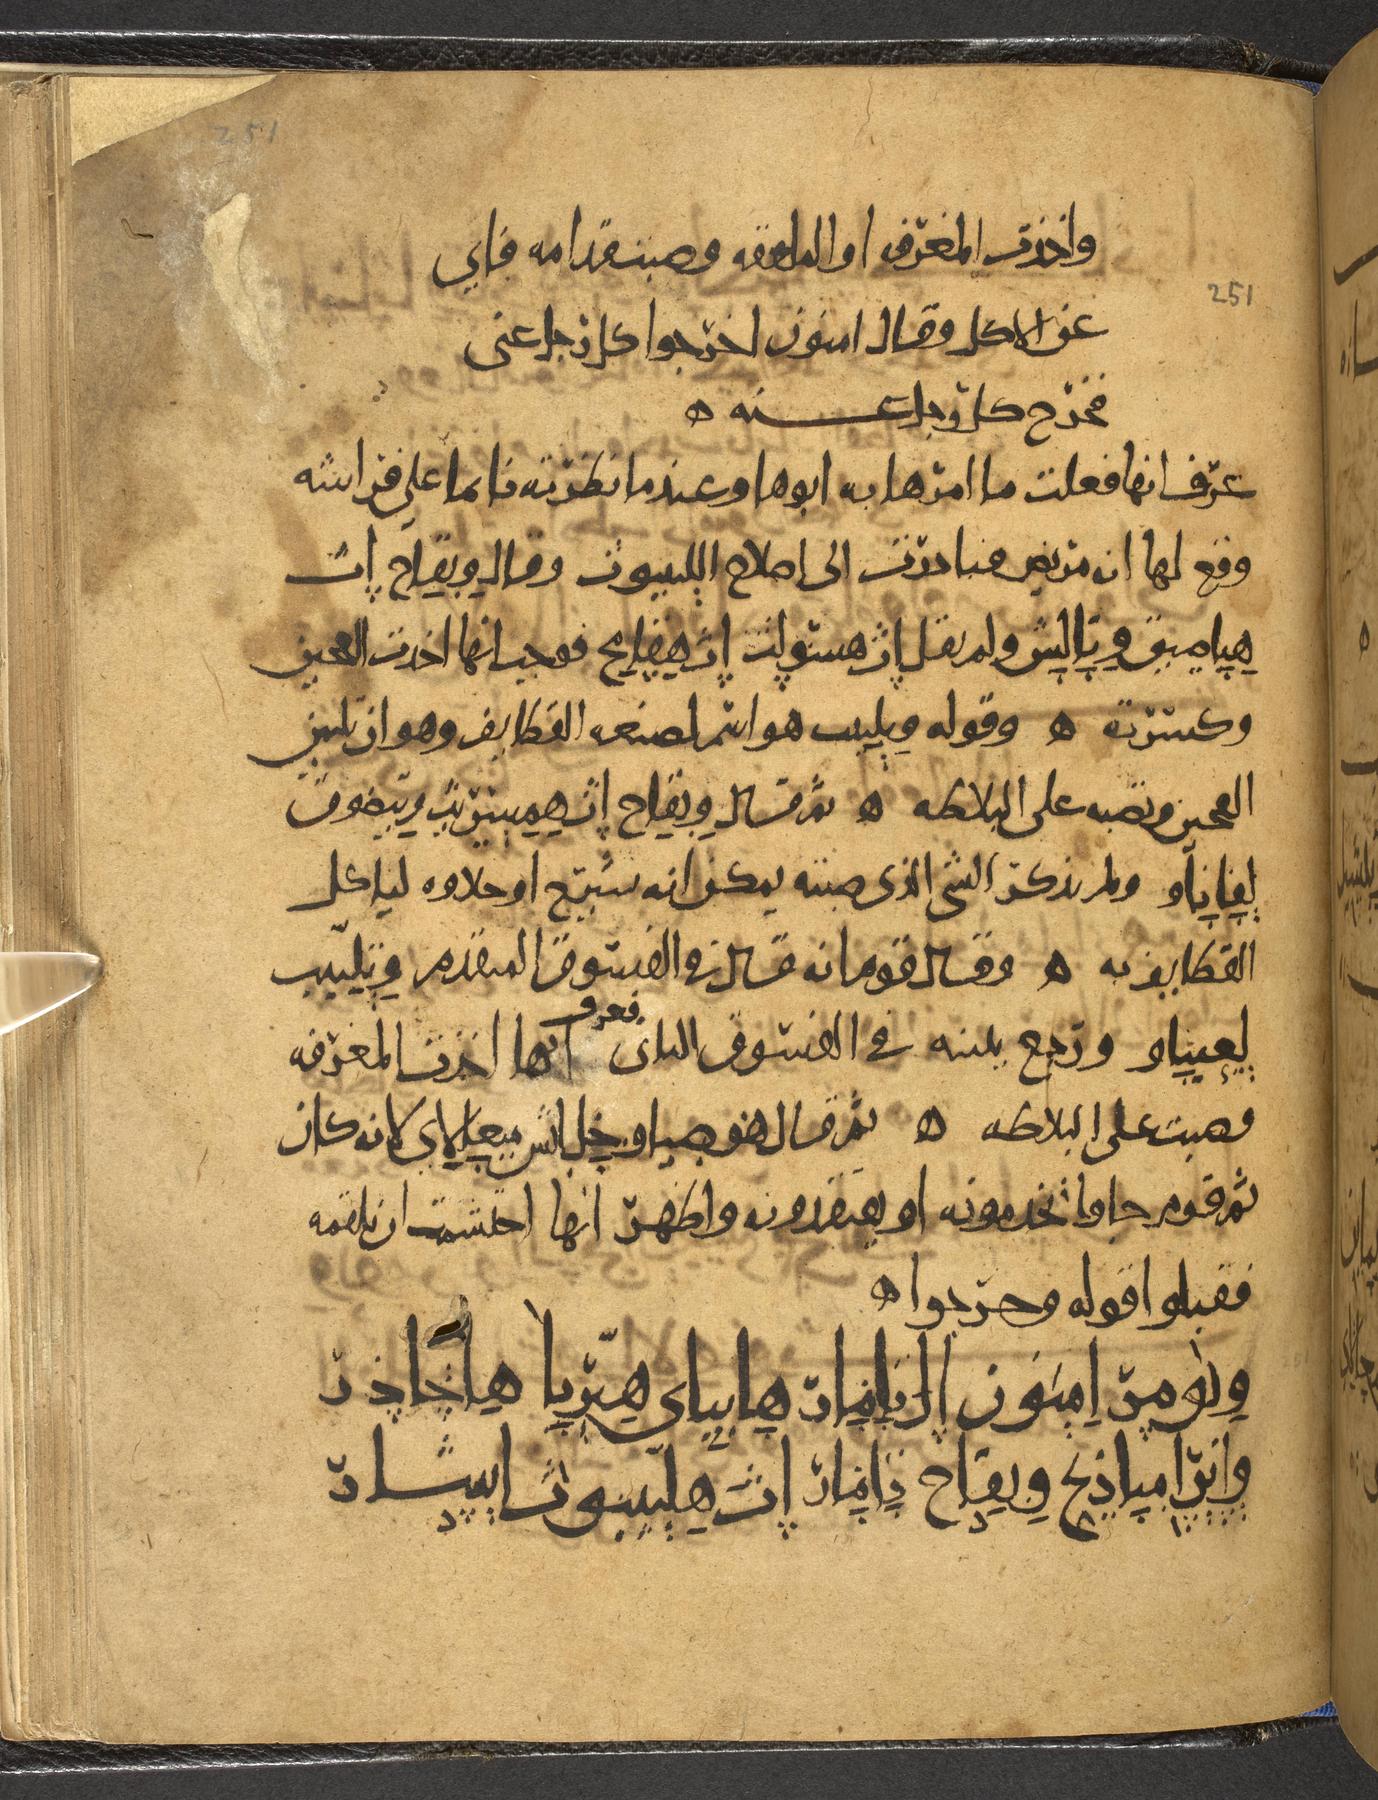 251
251
واخذت المغرفه او الملعقه وصبت قدامه فابي
عن الاكل وقال امنون اخرجوا كل رجل عني
فخرج كل رجل عنه ه
عرف انها فعلت ما امرها به ابوها وعندما نظرته نايما على فراشه
وقع لها انه مريض فبادرت الى اصلاح اللبيبوث وقال ويقاح اث
هباصيق وتالش ولم يقل اث هسولث اث هقامح فوجب انها اخدت العجين
وكسرته ه وقوله ويلبب هو اسم لصنعه القطايف وهو ان يلين
العجين ونصبه على البلاطه ه ثم قال ويقاح اث همسريث ويتيصوق
لفاناو ولم يذكر الشي الذي صبته يمكن انه سيرج او حلاوه لياكل
القطايف به ه وقال قوم انه قال في الفسوق المتقدم وتليبب
لعيناو ورجع بلبنه في الفسوق الثاني فعرف انها اخذت المغرفه
وصبت على البلاطه ه ثم قال هوصياو خل ايش ميعالاي لانه كان
ثم قوم جاوا يخدمونه او يفتقدونه واظهر انها احتشمت ان تلقمه
فقبلوا قوله وخرجوا ه
ويومر امنون ال تامار هابياي هبريا هاحاذر
وابرا مياذيخ ويقاح تامار اث هلبيبوث اشير عاشاثا